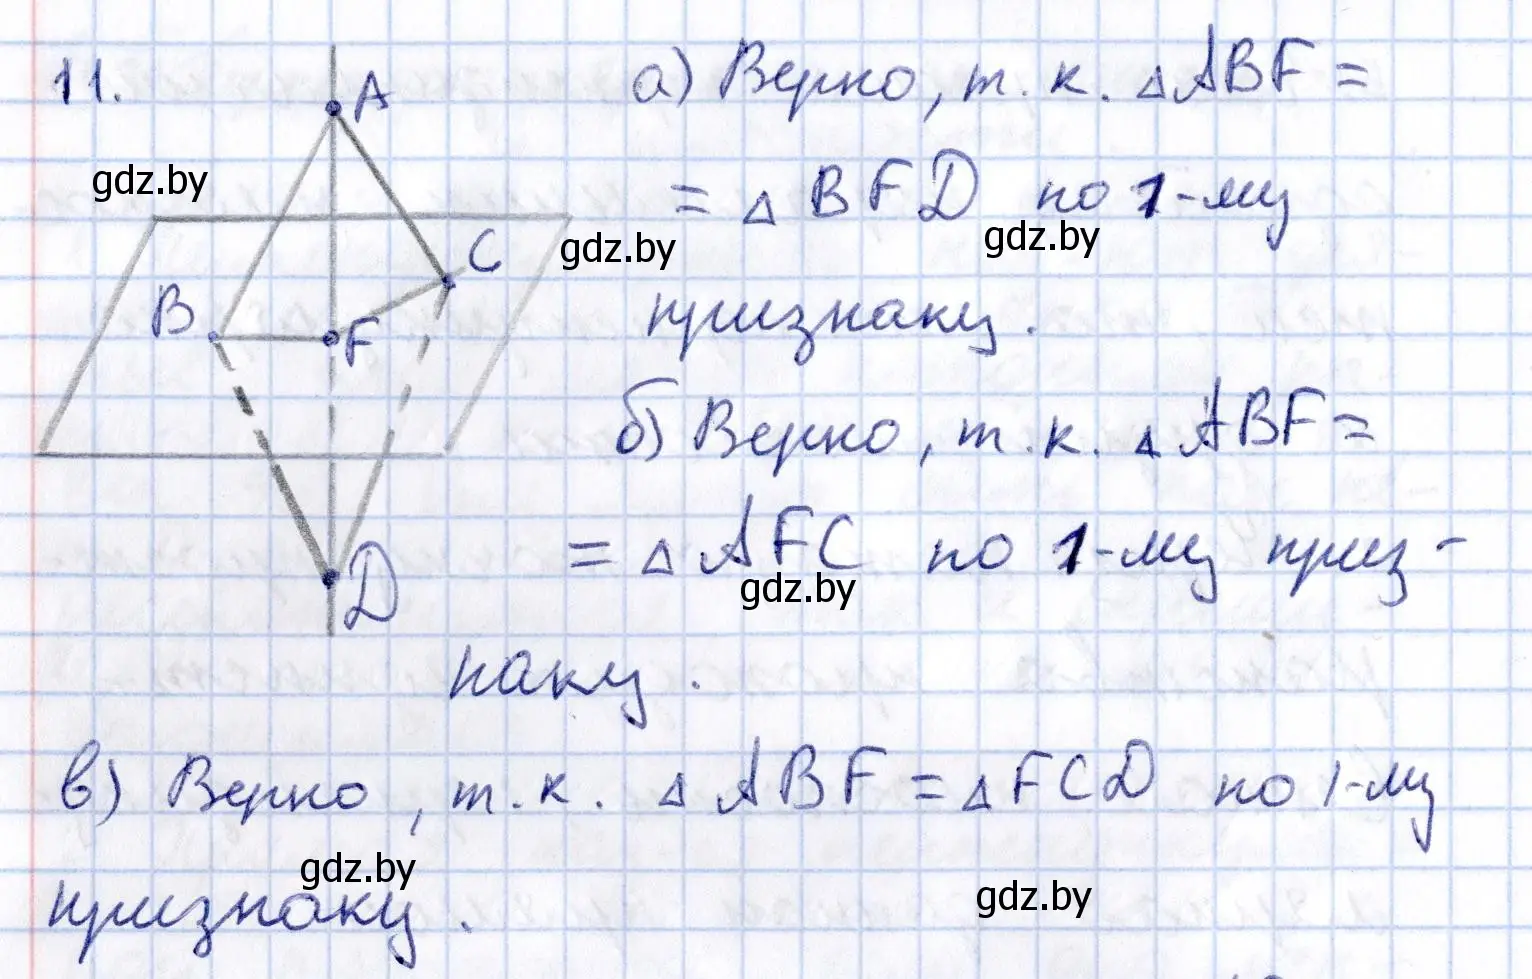 11.
A
а) Верно, т. к. △ABF =
gdz.by
= △BFD по 1-му
gdz.by
gdz.by
C
B
F
признаку.
б) Верно, т. к. △ABF =
= △AFC по 1-му приз-
gdz.by
D
наку.
в) Верно, т. к. △ABF = △FCD по 1-му
gdz.by
gdz.by
признаку.